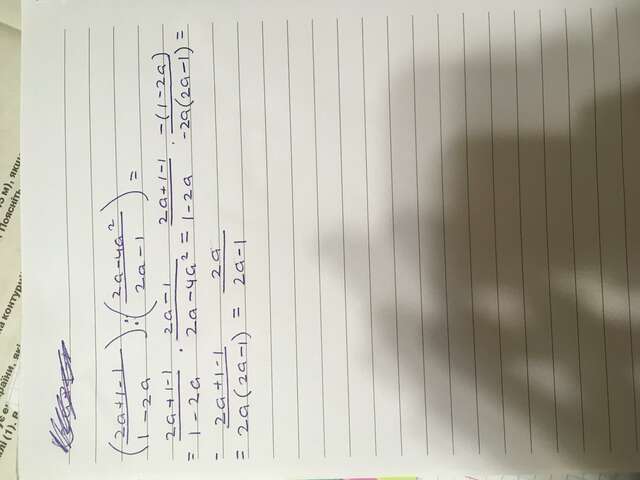 (2a+1-1 / 1-2a) : (2a-4a² / 2a-1) =
= 2a+1-1 / 1-2a · 2a-1 / 2a-4a² = 2a+1-1 / 1-2a · -(1-2a) / -2a(2a-1) =
= - 2a+1-1 / 2a(2a-1) = 2a / 2a-1
м), якщ
Поясніть
на контурн
які